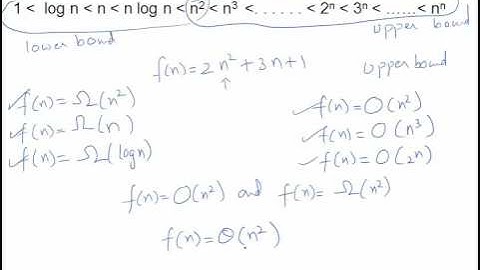 1 < log n < n < n log n < n² < n³ <. . . . . . . < 2ⁿ < 3ⁿ < ......< nⁿ
lower bond
upper bond
f(n) = 2n² + 3n + 1
↑
upper bound
✓f(n) = Ω(n²)
✓f(n) = Ω(n)
✓f(n) = Ω(log n)
✓f(n) = O(n²)
✓f(n) = O(n³)
✓f(n) = O(2n)
f(n) = O(n²) and f(n) = Ω(n²)
f(n) = Θ(n²)